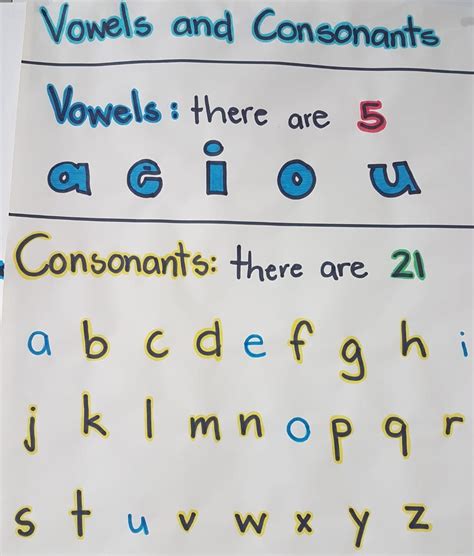 Vowels and Consonants
Vowels: there are 5
a e i o u
Consonants: there are 21
a b c d e f g h i
j k l m n o p q r
s t u v w x y z